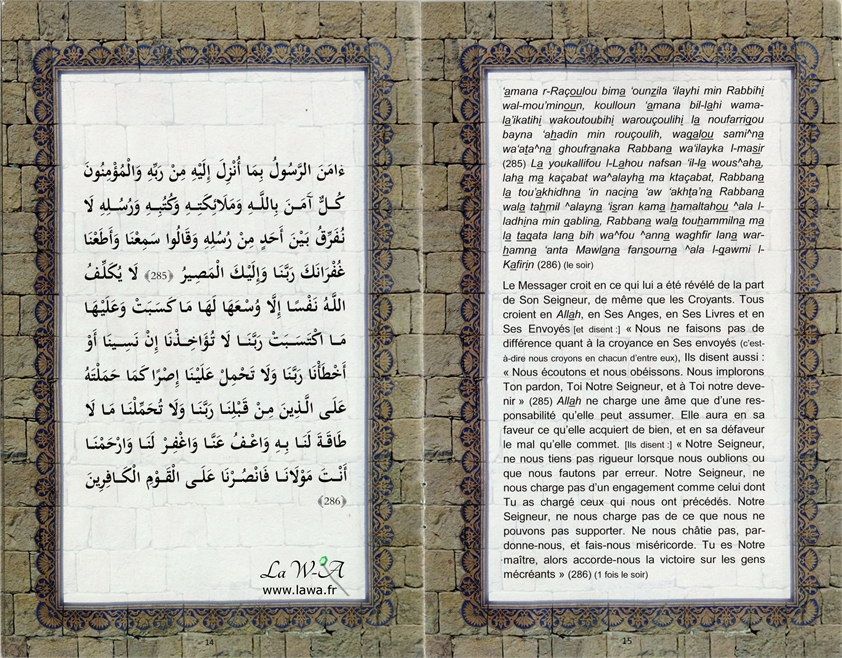 ءَامَنَ الرَّسُولُ بِمَا أُنْزِلَ إِلَيْهِ مِنْ رَبِّهِ وَالْمُؤْمِنُونَ
كُلٌّ آمَنَ بِاللَّهِ وَمَلَائِكَتِهِ وَكُتُبِهِ وَرُسُلِهِ لَا
نُفَرِّقُ بَيْنَ أَحَدٍ مِنْ رُسُلِهِ وَقَالُوا سَمِعْنَا وَأَطَعْنَا
غُفْرَانَكَ رَبَّنَا وَإِلَيْكَ الْمَصِيرُ ﴿285﴾ لَا يُكَلِّفُ
اللَّهُ نَفْسًا إِلَّا وُسْعَهَا لَهَا مَا كَسَبَتْ وَعَلَيْهَا
مَا اكْتَسَبَتْ رَبَّنَا لَا تُؤَاخِذْنَا إِنْ نَسِينَا أَوْ
أَخْطَأْنَا رَبَّنَا وَلَا تَحْمِلْ عَلَيْنَا إِصْرًا كَمَا حَمَلْتَهُ
عَلَى الَّذِينَ مِنْ قَبْلِنَا رَبَّنَا وَلَا تُحَمِّلْنَا مَا لَا
طَاقَةَ لَنَا بِهِ وَاعْفُ عَنَّا وَاغْفِرْ لَنَا وَارْحَمْنَا
أَنْتَ مَوْلَانَا فَانْصُرْنَا عَلَى الْقَوْمِ الْكَافِرِينَ
﴿286﴾
La W-A
www.lawa.fr
14
'amana r-Raçoulou bima 'ounzila 'ilayhi min Rabbihi
wal-mou'minoun, koulloun 'amana bil-lahi wama-
la'ikatihi wakoutoubihi warouçoulihi la noufarriqou
bayna 'ahadin min rouçoulih, waqalou sami^na
wa'ata^na ghoufranaka Rabbana wa'ilayka l-masir
(285) La youkallifou l-Lahou nafsan 'il-la wous^aha,
laha ma kaçabat wa^alayha ma ktaçabat, Rabbana
la tou'akhidhna 'in nacina 'aw 'akhta'na Rabbana
wala tahmil ^alayna 'isran kama hamaltahou ^ala l-
ladhina min qablina, Rabbana wala touhammilna ma
la taqata lana bih wa^fou ^anna waghfir lana war-
hamna 'anta Mawlana fansourna ^ala l-qawmi l-
Kafirin (286) (le soir)
Le Messager croit en ce qui lui a été révélé de la part
de Son Seigneur, de même que les Croyants. Tous
croient en Allah, en Ses Anges, en Ses Livres et en
Ses Envoyés [et disent :] « Nous ne faisons pas de
différence quant à la croyance en Ses envoyés (c'est-
à-dire nous croyons en chacun d'entre eux), Ils disent aussi :
« Nous écoutons et nous obéissons. Nous implorons
Ton pardon, Toi Notre Seigneur, et à Toi notre deve-
nir » (285) Allah ne charge une âme que d'une res-
ponsabilité qu'elle peut assumer. Elle aura en sa
faveur ce qu'elle acquiert de bien, et en sa défaveur
le mal qu'elle commet. [Ils disent :] « Notre Seigneur,
ne nous tiens pas rigueur lorsque nous oublions ou
que nous fautons par erreur. Notre Seigneur, ne
nous charge pas d'un engagement comme celui dont
Tu as chargé ceux qui nous ont précédés. Notre
Seigneur, ne nous charge pas de ce que nous ne
pouvons pas supporter. Ne nous châtie pas, par-
donne-nous, et fais-nous miséricorde. Tu es Notre
maître, alors accorde-nous la victoire sur les gens
mécréants » (286) (1 fois le soir)
15